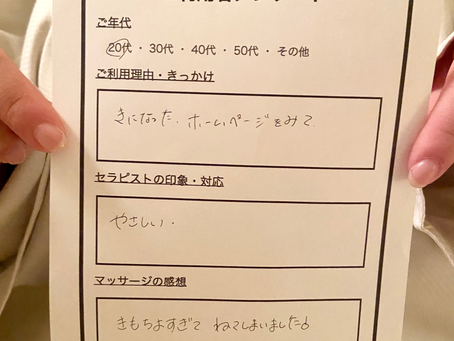 ご年代
20代 ・ 30代 ・ 40代 ・ 50代 ・ その他
ご利用理由・きっかけ
きになった. ホームページをみて
セラピストの印象・対応
やさしい.
マッサージの感想
きもちよすぎて ねてしまいました